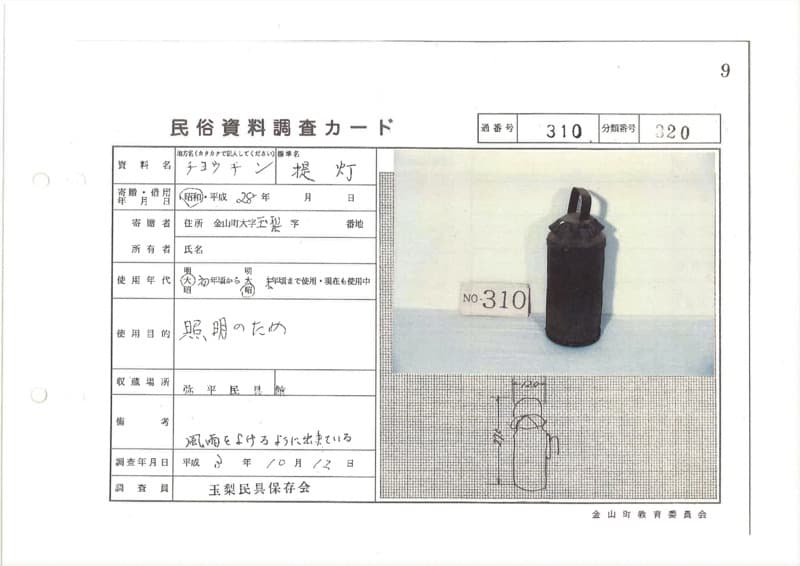 9
民俗資料調査カード
通番号 310 分類番号 320
資料名 地方名(カタカナで記入してください) チヨウチン 標準名 提灯
寄贈・借用年月日 昭和・平成 28年 月 日
寄贈者 住所 金山町大字玉梨字 番地
所有者 氏名
使用年代 明大昭 初年頃から 明大昭 年頃まで使用・現在も使用中
使用目的 照明のため
収蔵場所 弥平民具館
備考 風雨をよけるように出来ている
調査年月日 平成 3年 10月 12日
調査員 玉梨民具保存会
NO-310
120
金山町教育委員会